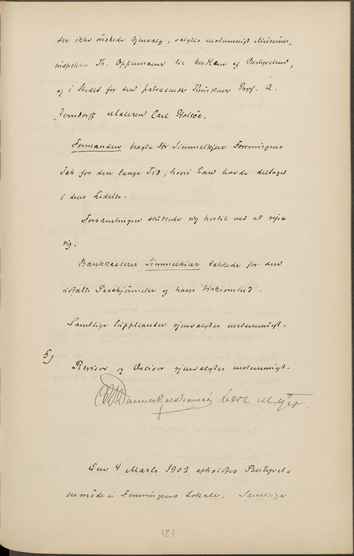 der ikke ønskede Gjenvalg, valgtes enstemmigt Museums-
inspektør Th. Oppermann til
og i Stedet for den fratrædende Kunstner Prof. A.
Jerndorff Maleren Carl Holsøe.
Formanden bragte Hr Simmelkjær Foreningens
Tak for den lange Tid, hvori han havde deltaget
i dens Ledelse.
Forsamlingen sluttede sig hertil ved at rejse
sig.
Simmelkjær takkede for den
udtalte Paaskjønnelse af hans Virksomhed.
Samtlige Supplianter gjenvalgtes enstemmigt.
5) Revisor og Decisor gjenvalgtes enstemmigt.
Den 4 Marts 1902 afholdtes Bestyrelses-
møde i Foreningens Lokale. Samtlige